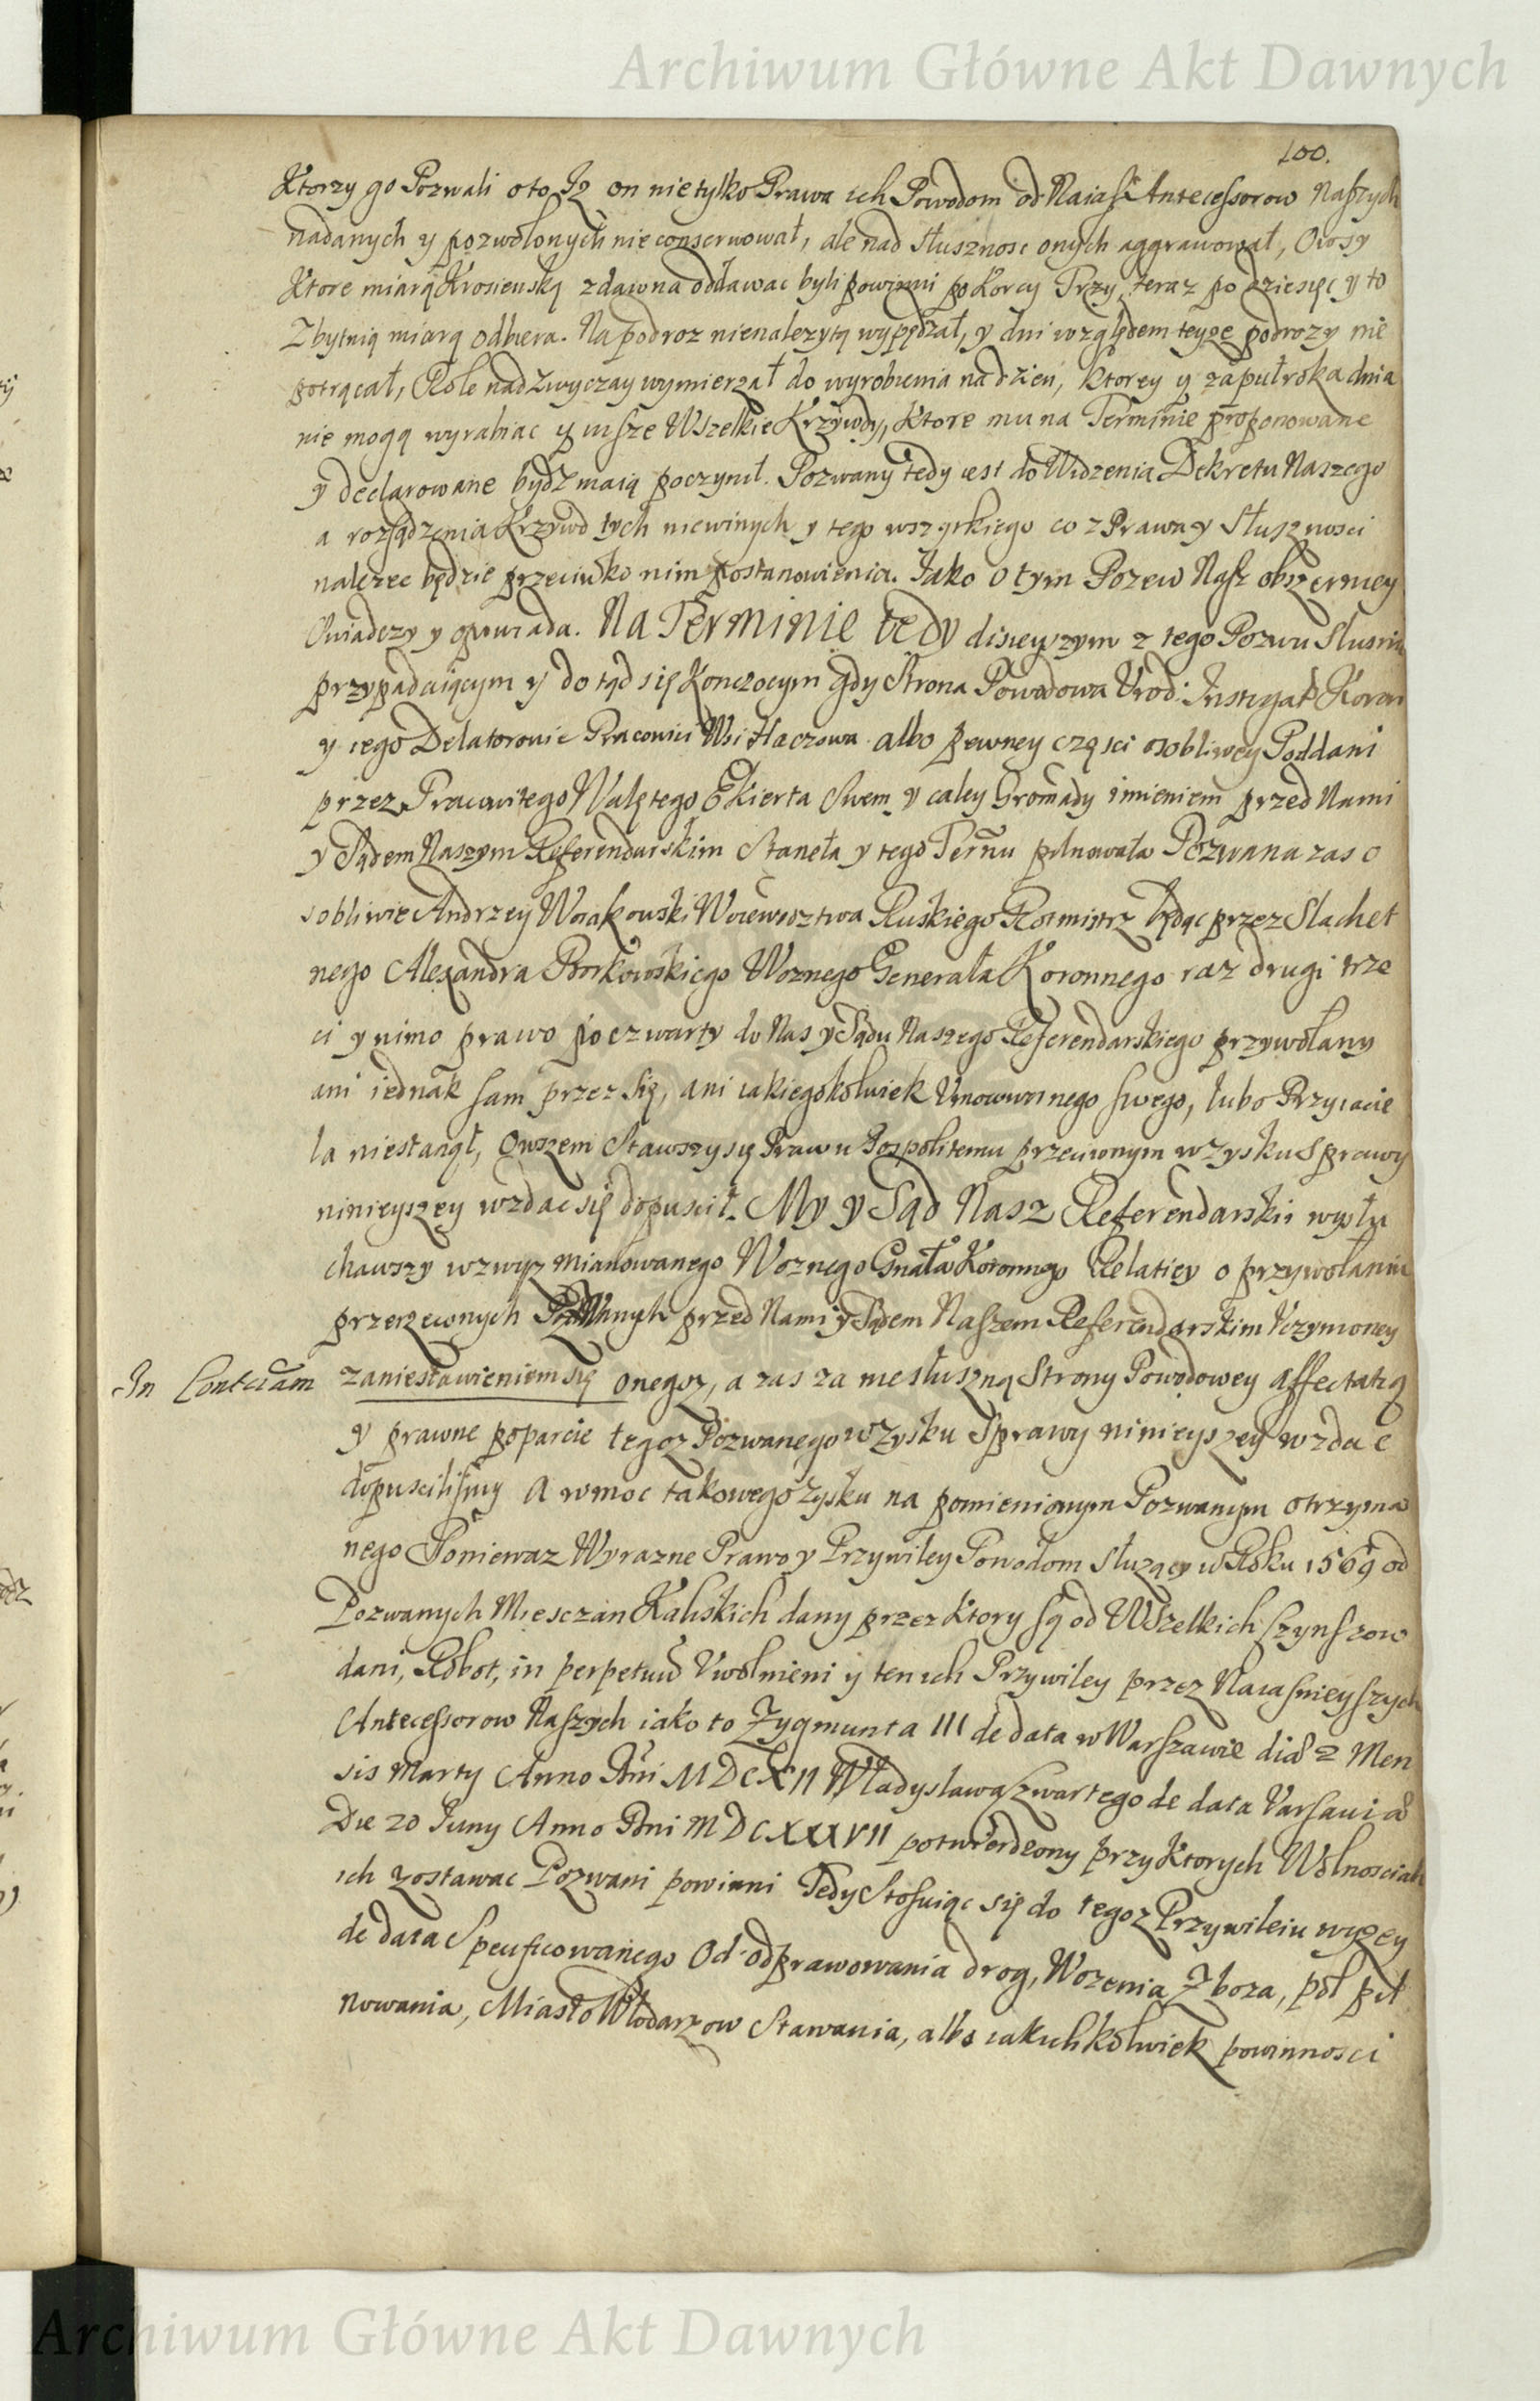 Archiwum Główne Akt Dawnych
100.
Ktorzy go Pozwali o to Iz on nie tylko Prawa ich Powodom od Naiaś Antecessorow Naszych
nadanych y pozwolonych nie conserwował, ale nad słusznosc onych aggrawował, Owsy
Ktore miarą Krosienską zdawna oddawac byli powinni po Korcy Trzy, teraz po dziesięc y to
Zbytnią miarą odbiera. Na podroz nienalezytą wypędzał, y dni względem teyze podrozy nie
potrącał, Role nad Zwyczay wymierzał do wyrobienia na dzien, ktorey y za pułroka dnia
nie mogą wyrabiac y insze Wszelkie Krzywdy, Ktore mu na Terminie proponowane
y declarowane bydz maią poczynił. Pozwany tedy iest do Widzenia Dekretu Naszego
a rozsądzenia Krzywd tych niewinych y tego wszytkiego co z Prawa y Słusznosci
nalezec będzie przeciwko nim postanowienia. Iako o tym Pozew Nasz obszerniey
Swiadczy y opowiada. Na Terminie tedy disieyszym z tego Pozwu Slusnie
przypadaiącym y do tąd się Konczocym gdy Strona Powodowa Urod: Instigat Koron
y iego Delatorowie Pracowici Wsi Haczowa albo pewney częsci osobliwey Poddani
przez Pracowitego Walętego Ekierta Swem y caley Gromady imieniem przed Nami
y Sądem Naszym Referendarskim Staneła y tego Ternu pilnowała Pozwana zas o
sobliwie Andrzey Woiakowski Woiewodztwa Ruskiego Rotmistrz będąc przez Slachet
nego Alexandra Borkowskiego Woznego Generała Koronnego raz drugi trze
ci y nimo prawo po czwarty do Nas y Sądu Naszego Referendarskiego przywołany
ani iednak sam przez Się, ani iakiegokolwiek Umocowanego swego, lubo Przyiacie
la niestanął, Owszem Stawszy się Prawu Pospolitemu przeciwnym w zysku Sprawy
ninieyszey wzdac się dopuscił. My y Sąd Nasz Referendarski wysłu
chawszy wzwyz mianowanego Woznego Gnała Koronnego Relatiey o przywołaniu
przerzeconych przed Nami y Sądem Naszem Referendarskim Uczynioney
In Contciam
za niestawieniem się onegoz, a zas za nie słuszną Strony Powodowey affectatią
y prawne poparcie tegoz Pozwanego w Zysku Sprawy ninieyszey wzdac
dopuscilismy A w moc takowego Zysku na pomienionym Pozwanym otrzyma
nego Poniewaz Wyrazne Prawo y Przywiley Powodom słuzący w Roku 1569 od
Pozwanych Miesczan Kaliskich dany przez Ktory są od Wszelkich szynszow
dani, Robot, in perpetuu Uwolnieni y ten ich Przywiley przez Naiasnieyszych
Antecessorow Naszych iako to Zygmunta III de data w Warszawie dia 2 Men
sis Marty Anno Dni MDCXII Władysława Czwartego de data Varsavia
Die 20 Iuny Anno Dni MDCXXXVII potwierdzony przy Ktorych Wolnosciach
ich zostawac Pozwani powinni Tedy Stosuiąc się do tegoz Przywileiu wyzey
de data Specificowanego Od odprawowania drog, Wozenia Zboza, pol pil
nowania, Miasto Włodarzow Stawania, albo iakichkolwiek powinnosci
Archiwum Główne Akt Dawnych